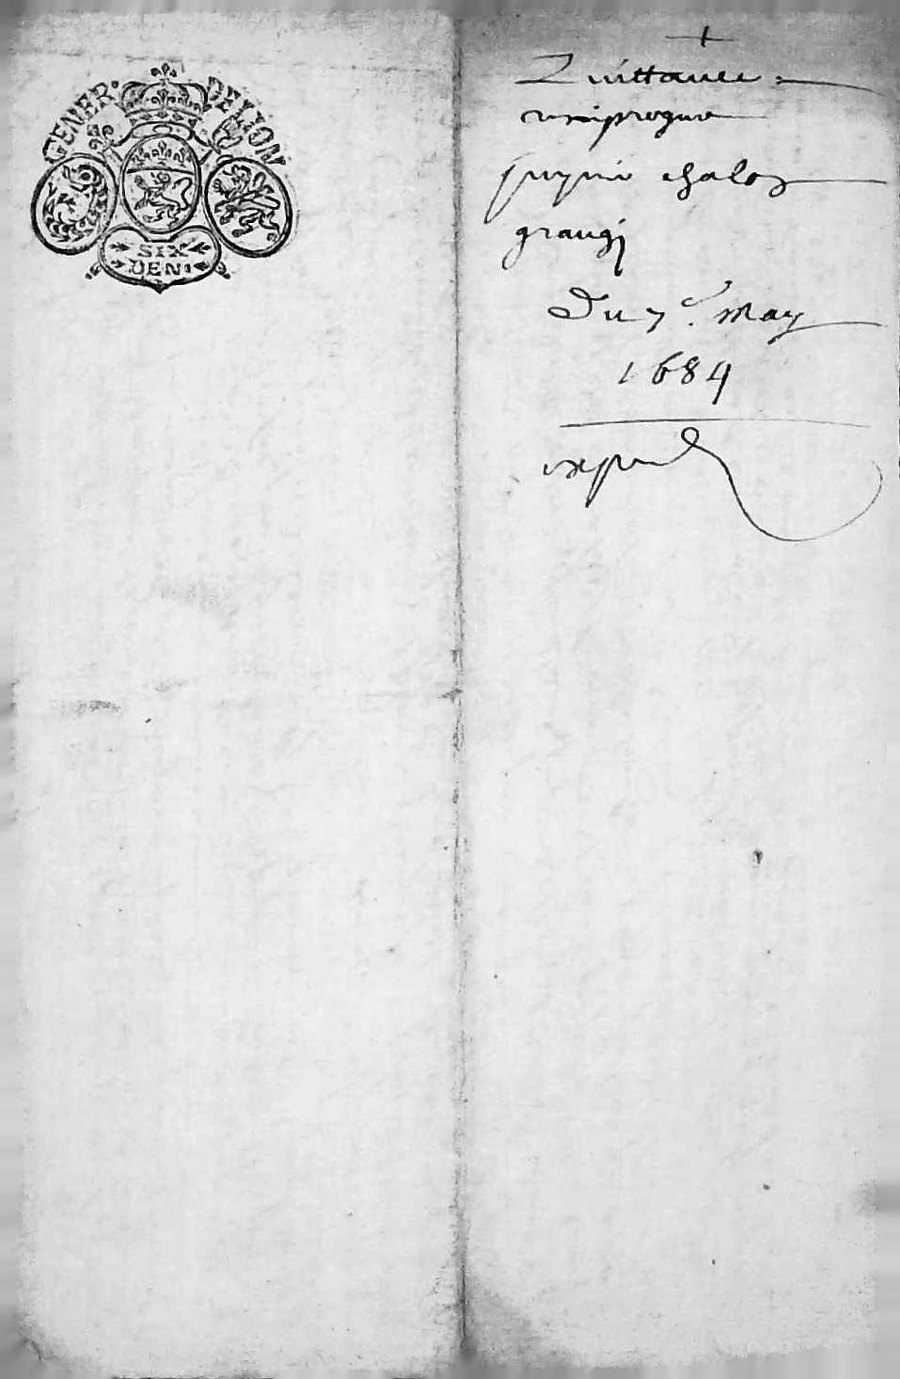 GENER. DE LION
SIX
DEN.
+
Quittance
reciproque
chalos
grangi
Du 7e. may
1684
exped